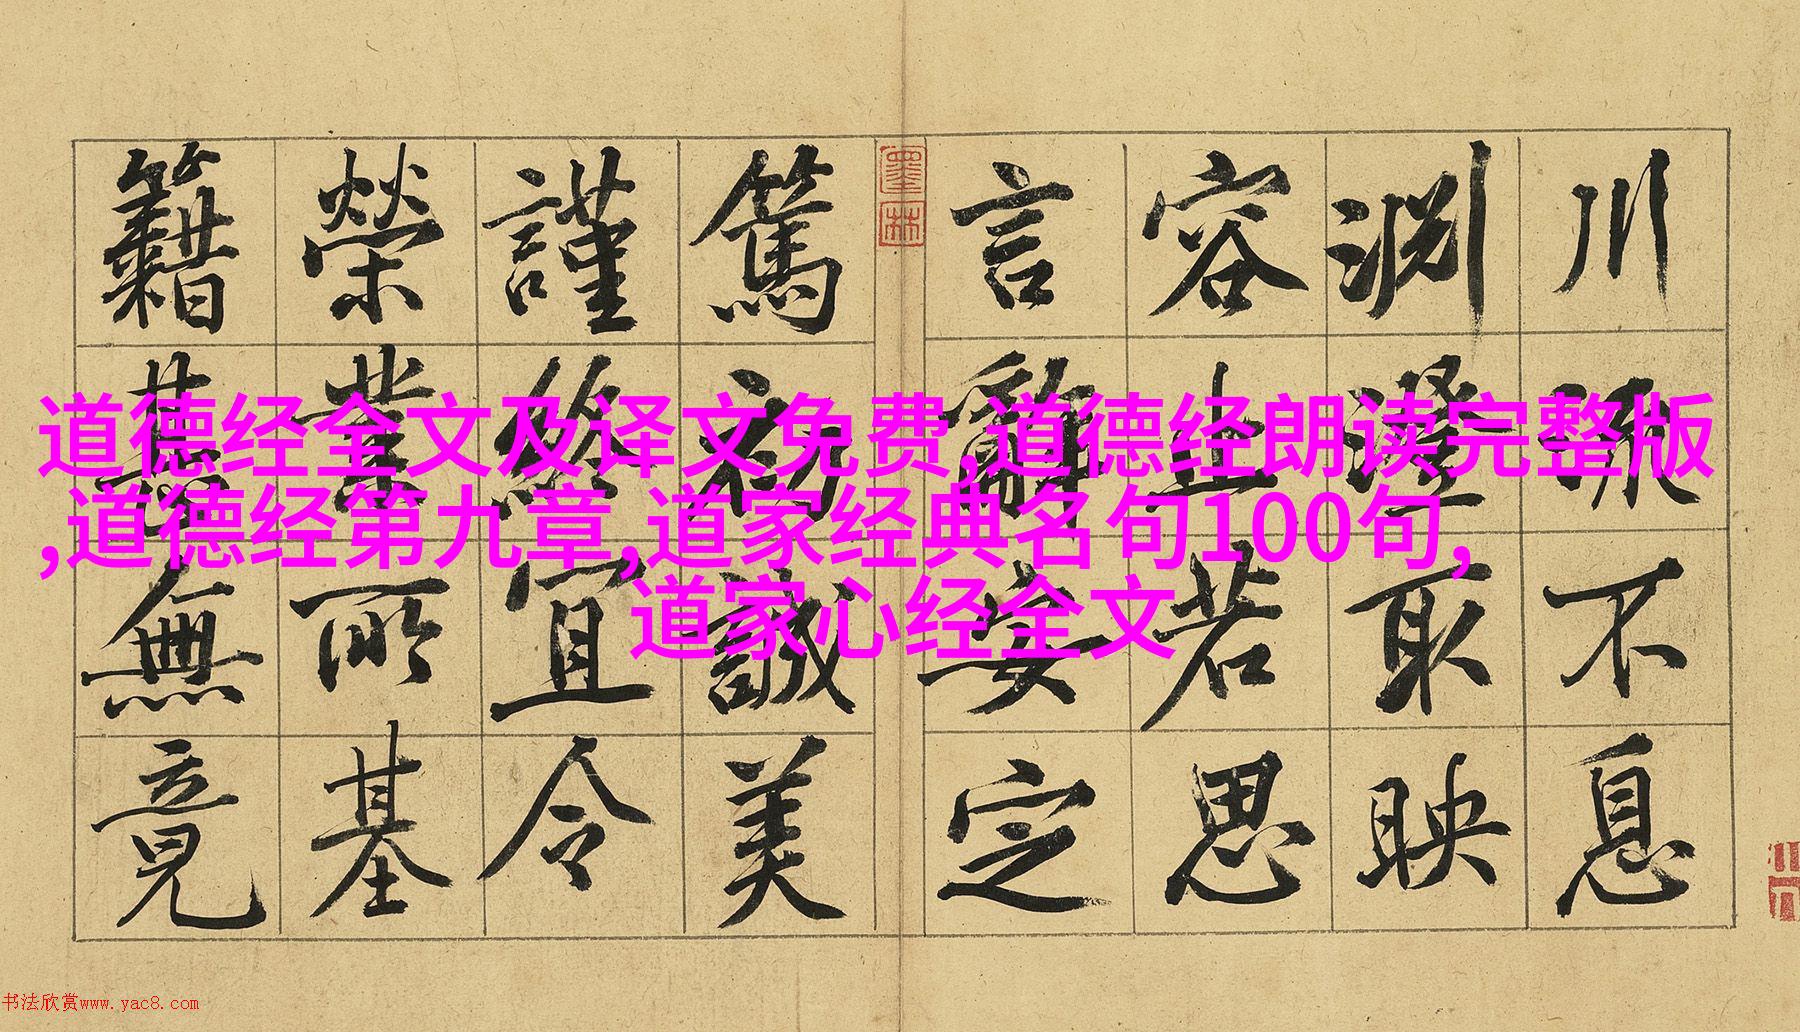 川流不息
淵澄取映
容止若思
言辭安定
墨林
篤初誠美
謹終宜令
榮業所基
籍甚無竟
道德经全文及译文免费,道德经朗读完整版
,道德经第九章,道家经典名句100句,
道家心经全文
书法欣赏www.yac8.com